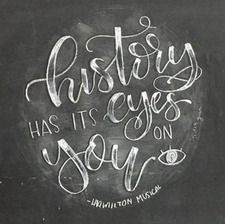 history
HAS ITS eyes ON
you
-HAMILTON MUSICAL